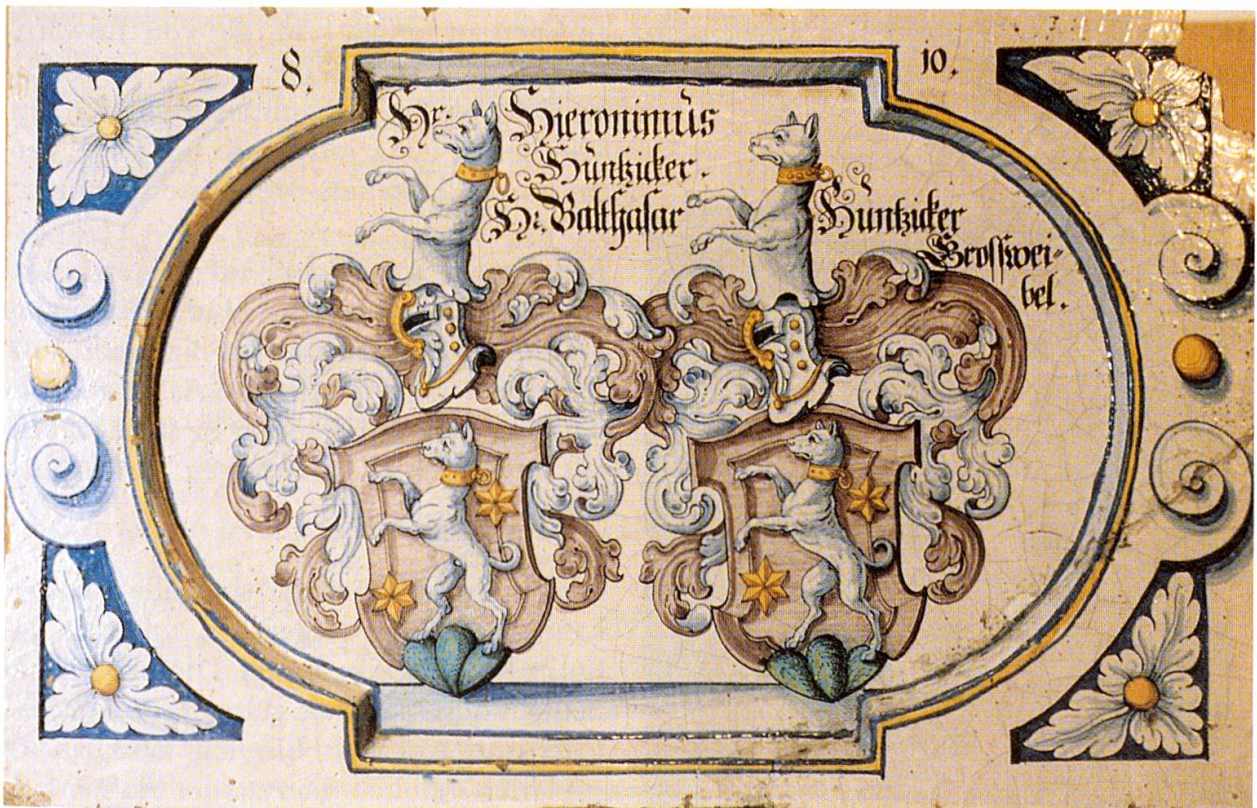 8. 10.
Hr. Hieronimus
Huntzicker.
Hr. Balthasar Huntzicker
Grossweibel.